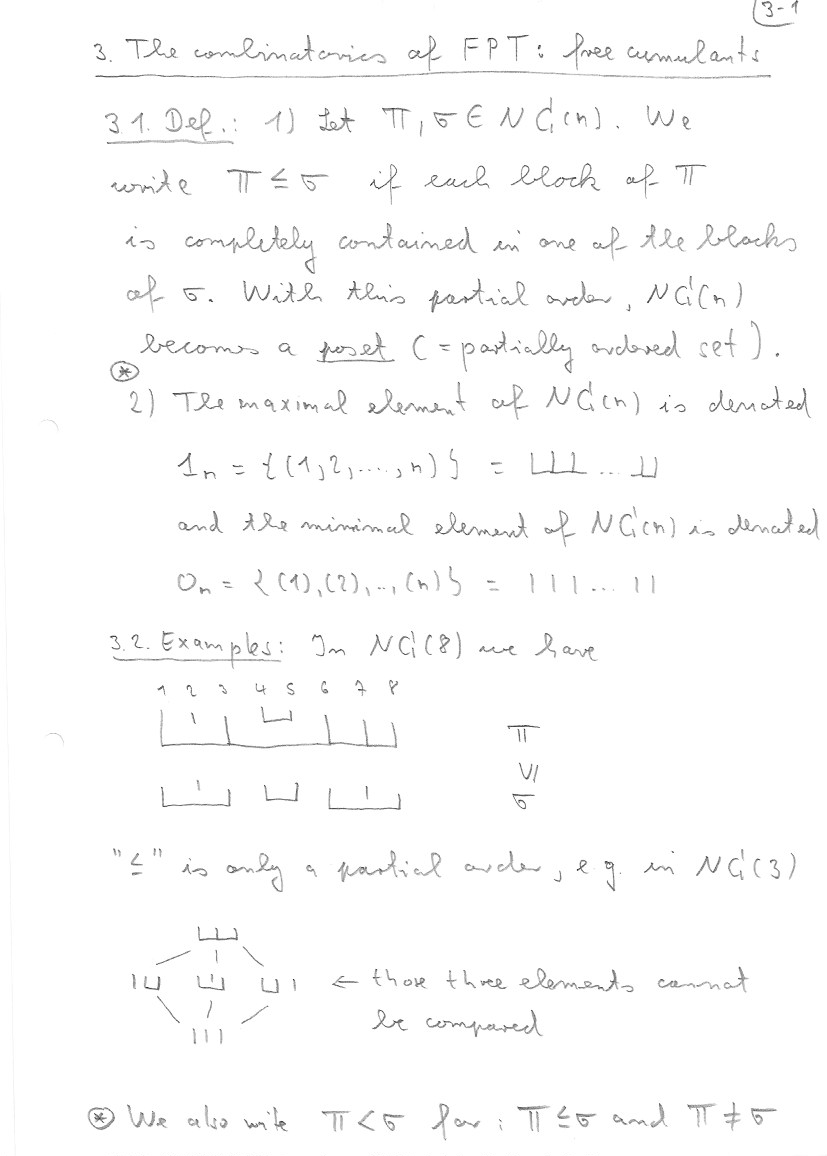 3-1
3. The combinatorics of FPT: free cumulants
3.1. Def.: 1) Let π, σ ∈ NC(n). We
write π ≤ σ if each block of π
is completely contained in one of the blocks
of σ. With this partial order, NC(n)
becomes a poset (= partially ordered set).
⊛
2) The maximal element of NC(n) is denoted
1ₙ = {(1,2,....,n)} =
and the minimal element of NC(n) is denoted
0ₙ = {(1),(2),..,(n)} =
3.2. Examples: In NC(8) we have
1 2 3 4 5 6 7 8
π
VI
σ
"≤" is only a partial order, e.g. in NC(3)
← those three elements cannot
be compared
⊛ We also write π < σ for: π ≤ σ and π ≠ σ